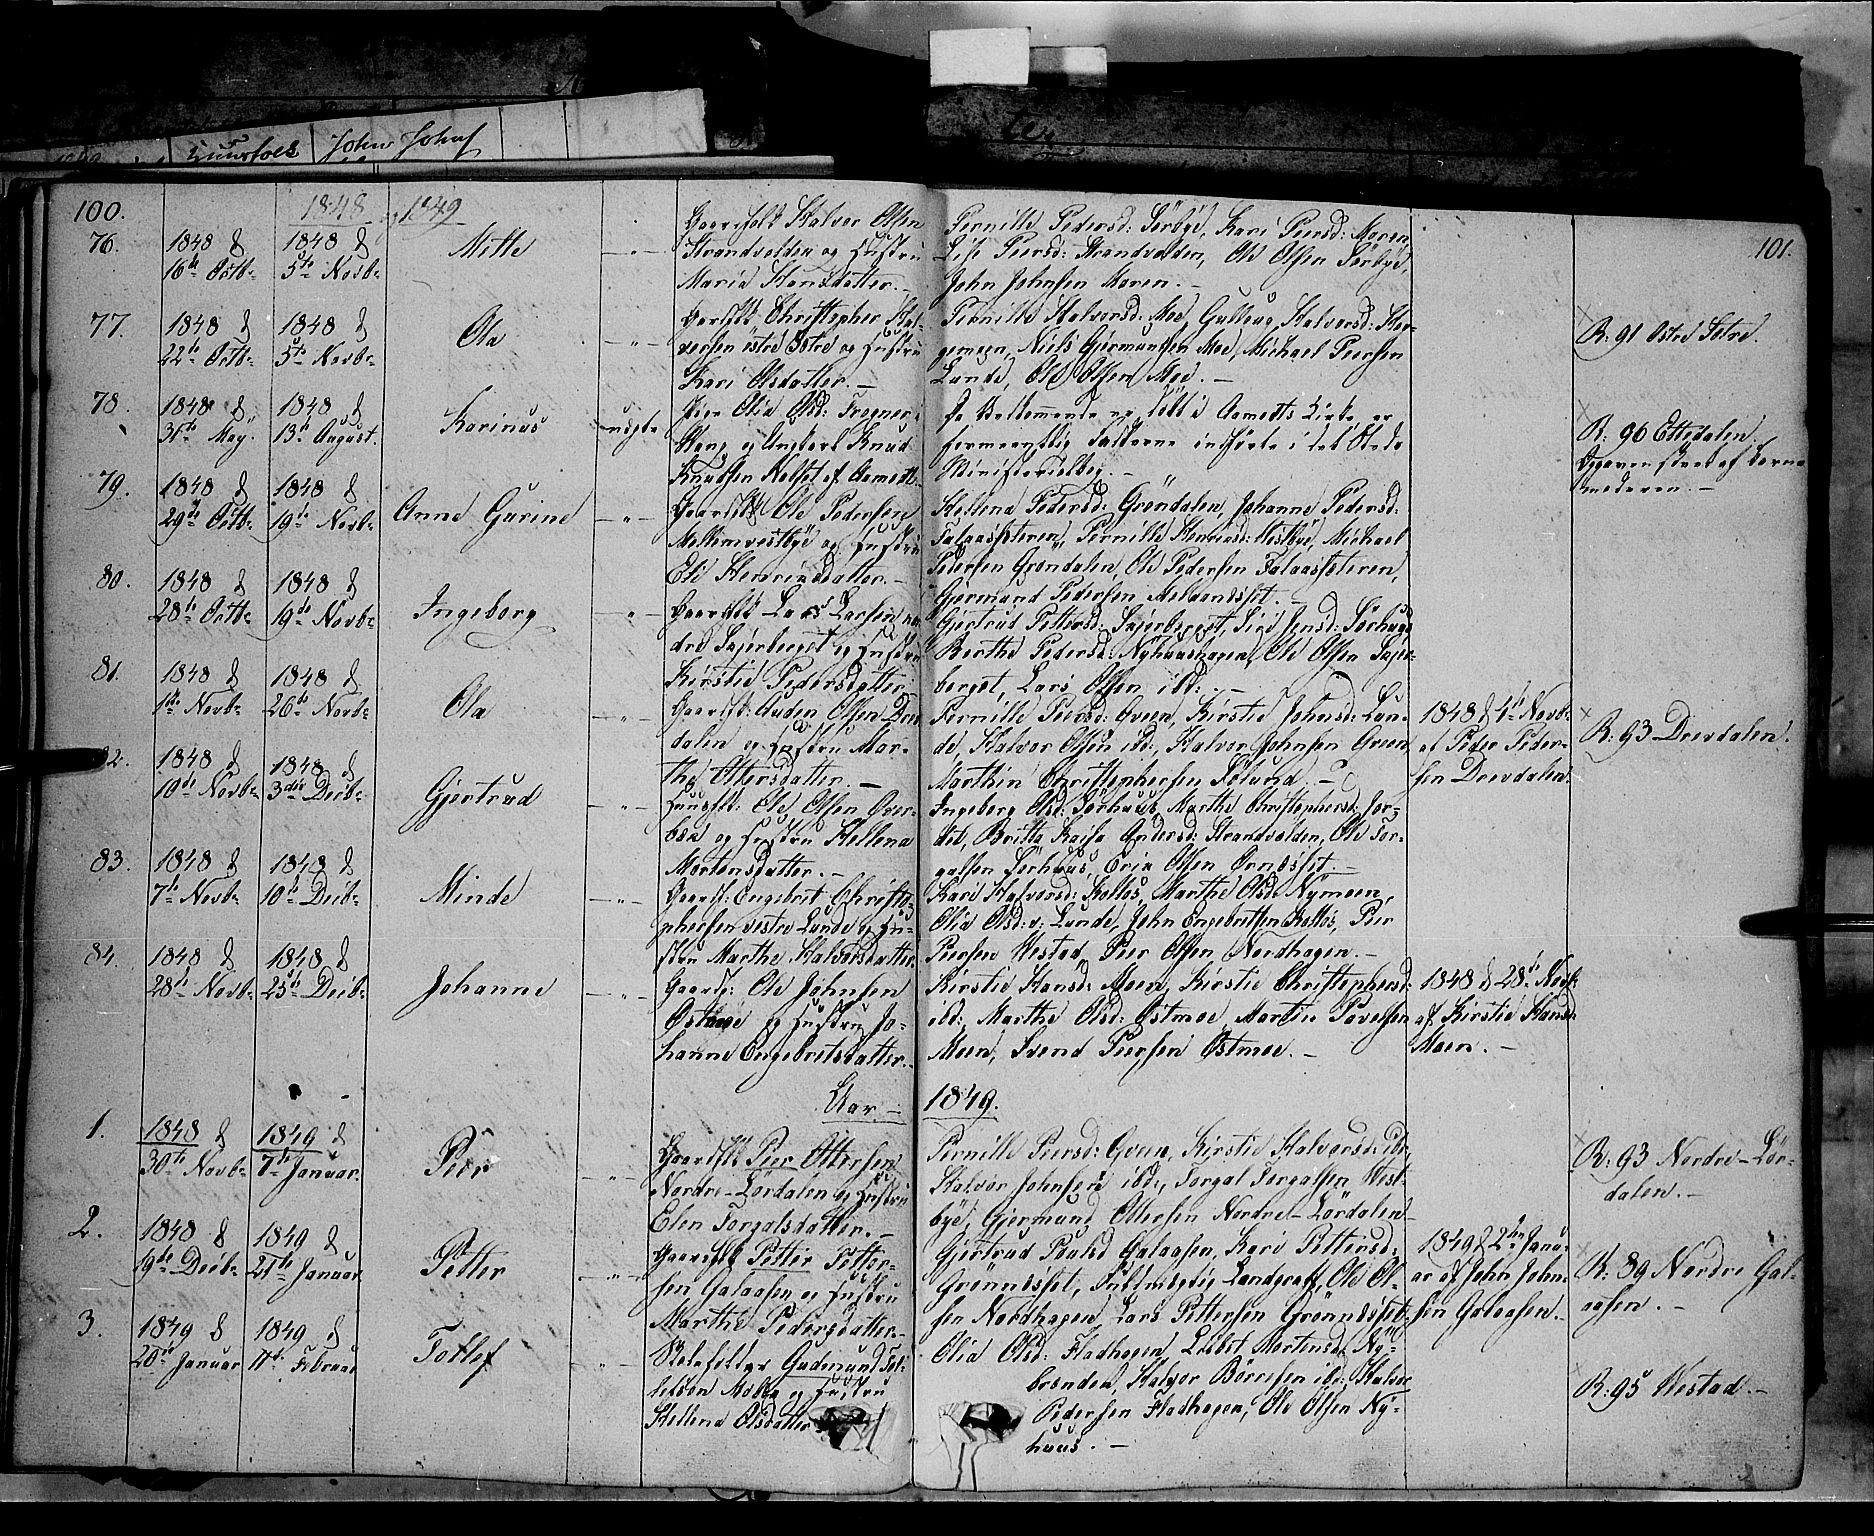 100.
1848 og 1849
76.
1848 d
16de Octb.
1848 d
5te Novb.
Mette
Gaardfolk Halvor Olsen
Strandvolden og Hustru
Maria Hansdatter. —
Pernille Pedersd: Sørbye, Kari Peersd: Moren,
Lisi Peersd: Strandvolden, Ole Olsen Sørbye,
John Johnsen Moren. —
101.
77.
1848 d
22de Octb.
1848 d
5te Novb.
Ola
Gaardfolk Christopher Hal-
vorsen østre Sætre og Hustru
Kari Olsdatter. —
Pernille Halvorsd: Moe, Halvorsd:
Niels Gjermundsen Moe, Michael Peersen
Lunde, Ole Olsen Moe. —
R: 91 Østre Setre.
78.
1848 d
31te May.
1848 d
13de August.
Karinus
uægte
Pige Olia Olsd:
og Ungkarl Knud
Knudsen af Aamodt.
Da Vedkommende er døbt i Aamodts Kirke, er
formeentlig Fadderne indførte i det Steds
Ministerialbog. —
R: 96 Ettedalen.
moderen. —
79.
1848 d
29de Octb.
1848 d
19de Novb.
Anne Gurine
Gaardfolk Ole Pedersen
Mellemvestbye og Hustru
Eli Henriksdatter. —
Hellena Pedersd: Grøndalen, Johanne Pedersd:
Falaassæteren, Pernille Henriksd: Vestbye, Michael
Pedersen Grøndalen, Ole Pedersen Falaassæteren,
Gjermund Pedersen
80.
1848 d
28de Octb.
1848 d
19de Novb.
Ingeborg
Gaardfolk Lars Larsen nor-
dre Skjerberget og Hustru
Kirstie Pedersdatter
Gjertrud Pettersd: Skjerberget, Siri Jensd: Sørhuus
Berthe Pedersd: Nyhuushagen, Ole Olsen Skjer-
berget, Lars Olsen ibd: —
81.
1848 d
1ste Novb.
1848 d
26de Novb.
Ola
Gaardfk: Auden Olsen Drev-
dalen og Hustru Mar-
the Ottersdatter. —
Pernille Peersd: Qveen, Kirstie Johnsd: Lun-
de, Halvor Olsen ibd:, Halvor Johnsen Qveen,
Marthin Christophersen
1848 d 4de Novb.
af Peder Peder-
sen Drevdalen.
R: 93 Drevdalen.
82.
1848 d
10de Novb.
1848 d
3die Decb.
Gjertrud
Huusfk: Ole Olsen Øver-
bæk og Hustru Hellena
Mortensdatter. —
Ingeborg Olsd: Sørhuus, Marthe Christophersd: Jor-
det, Britta Kaisa Andersd: Strandvolden, Ole Tor-
galsen Sørhuus, Erik Olsen
83.
1848 d
7de Novb.
1848 d
10de Decb.
Minde
Gaardf: Engebret Christo-
phersen vestre Lunde og Hu-
stru Marthe Halvorsdatter.
Kari Halvorsd: Kolles, Marthe Olsd: Nymoen,
Olia Olsd: v: Lunde, John Engebretsen Kolles, Peer
Peersen Westad, Peer Olsen Nordhagen. —
84.
1848 d
28de Novb.
1848 d
25de Decb.
Johanne
Gaardf: Ole Johnsen
Østmoe og Hustru Jo-
hanne Engebretsdatter. —
Kirstie Hansd: Moen, Kirstie Christophersd:
ibd:, Marthe Olsd: Østmoe, Martin Povelsen
Moen, Svend Peersen Østmoe. —
1848 d 28de Novb.
af Kirstie Hansd:
Moen. —
Aar — 1849.
1.
1848 d
30te Novb.
1849 d
7de Januar.
Peer
Gaardfolk Peer Ottersen
Nordre-Lørdalen og Hustru
Elen Torgalsdatter. —
Pernille Peersd: Qveen, Kirstie Halvorsd: ibd:
Halvor Johnsen ibd:, Torgal Torgalsen Vest-
bye, Gjermund Ottersen Nordre-Lørdalen
R: 93 Nordre-Lør-
dalen. —
2.
1848 d
19de Decb.
1849 d
21te Januar
Petter
Gaardfolk Petter Petter-
sen Galaasen og Hustru
Marthe Pedersdatter —
Gjertrud Paulsd Galaasen, Kari Pettersd:
Grønnæsset, Landgraff, Ole Ol-
sen Nordhagen, Lars Pettersen Grønnæsset
1849 d 2den Janu-
ar af John John-
sen Galaasen. —
R: 89 Nordre Gal-
aasen. —
3.
1849 d
20de Januar
1849 d
11te Februar
Tollef
Gudmund Tol-
lefsen Moen og Hustru
Hellena Olsdatter
Olia Olsd: Fladhagen, Mortensd: Ny-
brenden, Halvor Børresen ibd:, Halvor
Pedersen Fladhagen, Ole Olsen Ny-
huus. —
R: 95 Westad. —